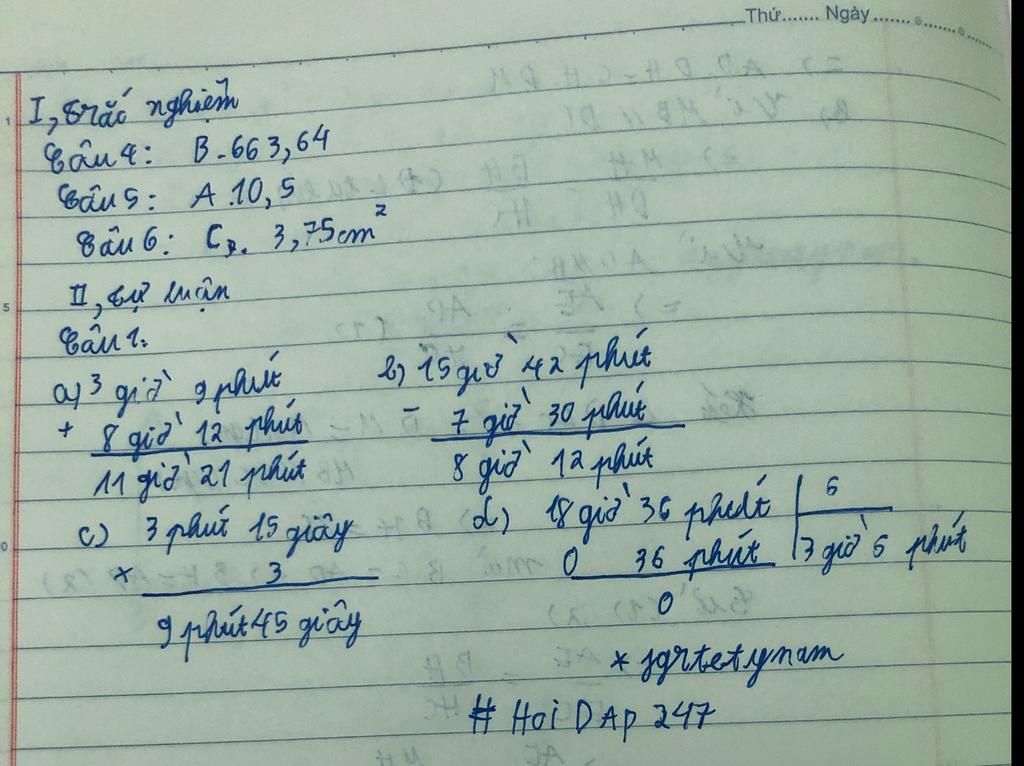 Thứ....... Ngày.......
I, Trắc nghiệm
Câu 4: B. 663,64
Câu 5: A. 10,5
Câu 6: C. 3,75cm²
II, Tự luận
Câu 1:
a) 3 giờ 9 phút b) 15 giờ 42 phút
+ 8 giờ 12 phút - 7 giờ 30 phút
11 giờ 21 phút 8 giờ 12 phút
c) 3 phút 15 giây d) 18 giờ 36 phút 6
× 3 0 36 phút 3 giờ 6 phút
9 phút 45 giây 0
* jgrtetynam
# Hoi DAp 247